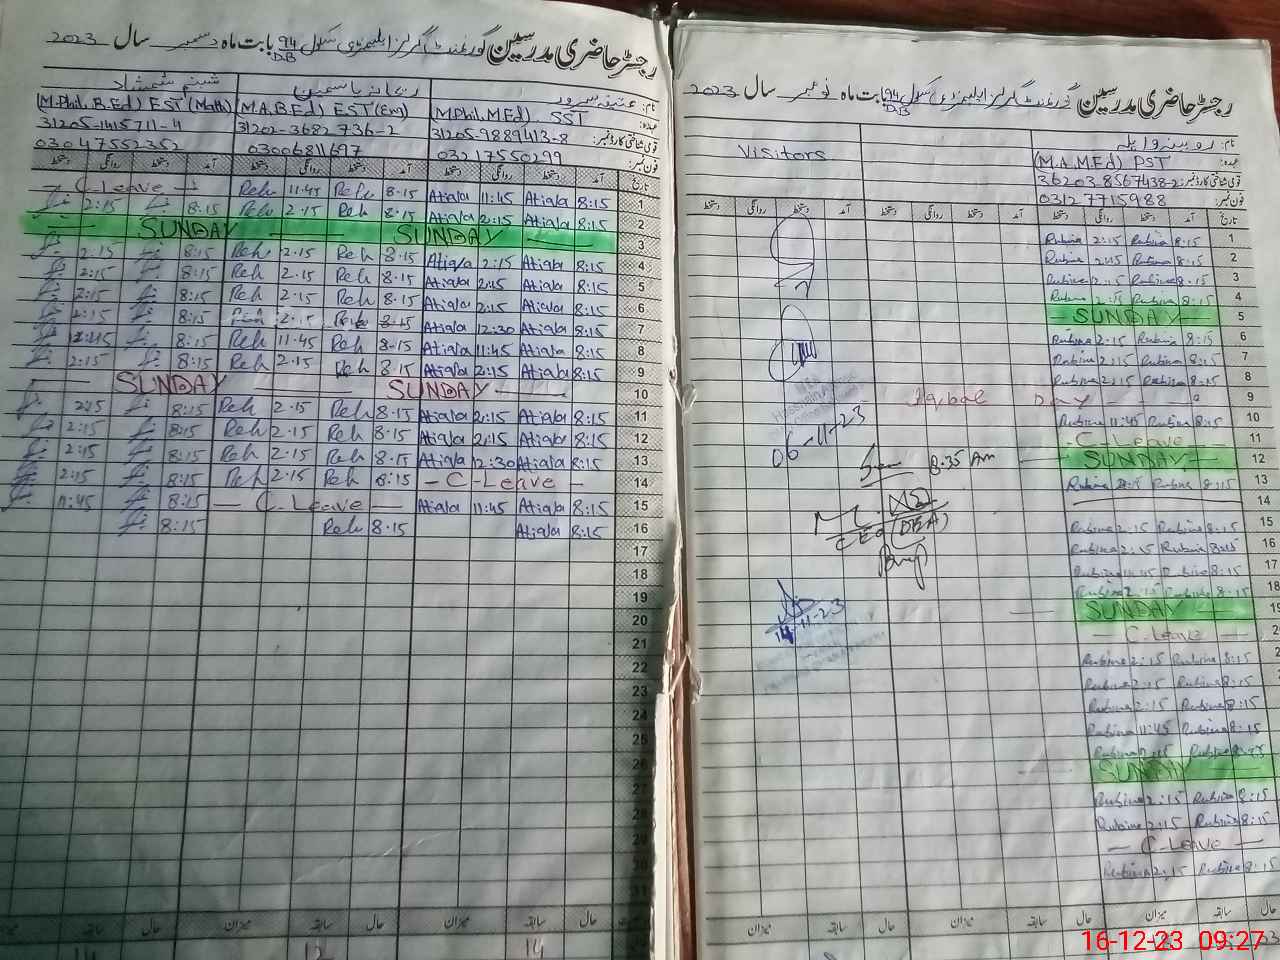 رجسٹر حاضری مدرسین گورنمنٹ گرلز ایلیمنٹری سکول 94 DB بابت ماہ دسمبر سال 2023
نام: عتیقہ سرور
ریحانہ یاسمین
شبنم شمشاد
عہدہ: (M.Phil, M.Ed) SST
(M.A.B.Ed) EST (Eng)
(M.Phil. B.Ed) EST (Math)
قومی شناختی کارڈ نمبر: 31205-9889413-8
31202-3682736-2
31205-1415711-4
فون نمبر: 03217550299
03006811697
03047552352
تاریخ آمد دستخط روانگی دستخط آمد دستخط روانگی دستخط آمد دستخط روانگی دستخط
1 8:15 Atiqa 11:45 Atiqa 8.15 Reh 11.45 Reh — C-Leave —
2 8:15 Atiqa 2:15 Atiqa 8.15 Reh 2.15 Reh 8:15 2:15
3 SUNDAY SUNDAY
4 8:15 Atiqa 2:15 Atiqa 8.15 Reh 2.15 Reh 8:15 2:15
5 8:15 Atiqa 2:15 Atiqa 8.15 Reh 2.15 Reh 8:15 2:15
6 8:15 Atiqa 2:15 Atiqa 8.15 Reh 2.15 Reh 8:15 2:15
7 8:15 Atiqa 12:30 Atiqa 8.15 Reh 2.15 8:15 2:15
8 8:15 Atiqa 11:45 Atiqa 8.15 Reh 11.45 Reh 8:15
9 8:15 Atiqa 2:15 Atiqa 8.15 Reh 2.15 Reh 8:15 2:15
10 SUNDAY SUNDAY
11 8:15 Atiqa 2:15 Atiqa 8.15 Reh 2.15 Reh 8:15 2:15
12 8:15 Atiqa 2:15 Atiqa 8.15 Reh 2.15 Reh 8:15 2:15
13 8:15 Atiqa 12:30 Atiqa 8.15 Reh 2.15 Reh 8:15 2:15
14 — C-Leave — 8:15 Reh 2.15 Reh 8:15 2:15
15 8:15 Atiqa 11:45 Atiqa — C-Leave — 8:15 11:45
16 8:15 Atiqa 8.15 Reh 8:15
17
18
19
20
21
22
23
24
25
26
27
28
29
30
31
حال سابقہ میزان حال سابقہ میزان حال سابقہ میزان
14 12 14
رجسٹر حاضری مدرسین گورنمنٹ گرلز ایلیمنٹری سکول 94 DB بابت ماہ نومبر سال 2023
نام: روبینہ
عہدہ: (M.A.MEd) PST
قومی شناختی کارڈ نمبر: 36203-8567438-2
فون نمبر: 03127715988
Visitors
تاریخ آمد دستخط روانگی دستخط آمد دستخط روانگی دستخط آمد دستخط روانگی دستخط
1 8:15 Rubina 2:15 Rubina
2 8:15 Rubina 2:15 Rubina
3 8:15 Rubina 2:15 Rubina
4 8:15 Rubina 2:15 Rubina
5 SUNDAY
6 8:15 Rubina 2:15 Rubina
7 8:15 Rubina 2:15 Rubina
8 8:15 Rubina 2:15 Rubina
9 Iqbal Day
10 8:15 Rubina 11:45 Rubina
11 C-Leave
12 SUNDAY
13 8:15 Rubina 2:15 Rubina
14
15 8:15 Rubina 2:15 Rubina
16 8:15 Rubina 2:15 Rubina
17 8:15 Rubina 11:45 Rubina
18 8:15 Rubina 2:15 Rubina
19 SUNDAY
— C-Leave —
8:15 Rubina 2:15 Rubina
8:15 Rubina 2:15 Rubina
8:15 Rubina 2:15 Rubina
8:15 Rubina 11:45 Rubina
8:15 Rubina 2:15 Rubina
SUNDAY
8:15 Rubina 2:15 Rubina
8:15 Rubina 2:15 Rubina
— C-Leave —
8:15 Rubina 2:15 Rubina
06-11-23
8:35 Am
CEO (DEA)
14-11-23
حال سابقہ میزان حال سابقہ میزان حال سابقہ میزان
16-12-23 09:27